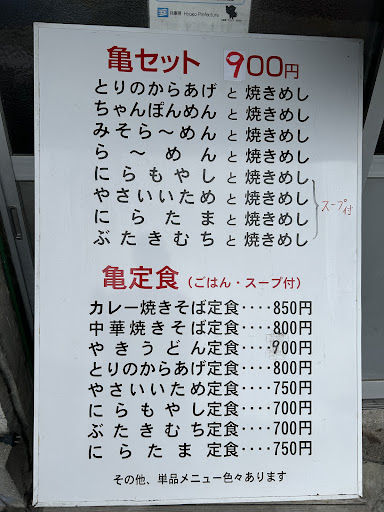 兵庫県 Hyogo Prefecture
亀セット 900円
とりのからあげ と 焼きめし
ちゃんぽんめん と 焼きめし
みそら〜めん と 焼きめし
ら〜めん と 焼きめし
にらもやし と 焼きめし
やさいいため と 焼きめし
にらたま と 焼きめし
ぶたきむち と 焼きめし
スープ付
亀定食（ごはん・スープ付）
カレー焼きそば定食‥‥850円
中華焼きそば定食‥‥800円
やきうどん定食‥‥700円
とりのからあげ定食‥‥800円
やさいいため定食‥‥750円
にらもやし定食‥‥700円
ぶたきむち定食‥‥700円
にらたま定食‥‥750円
その他、単品メニュー色々あります